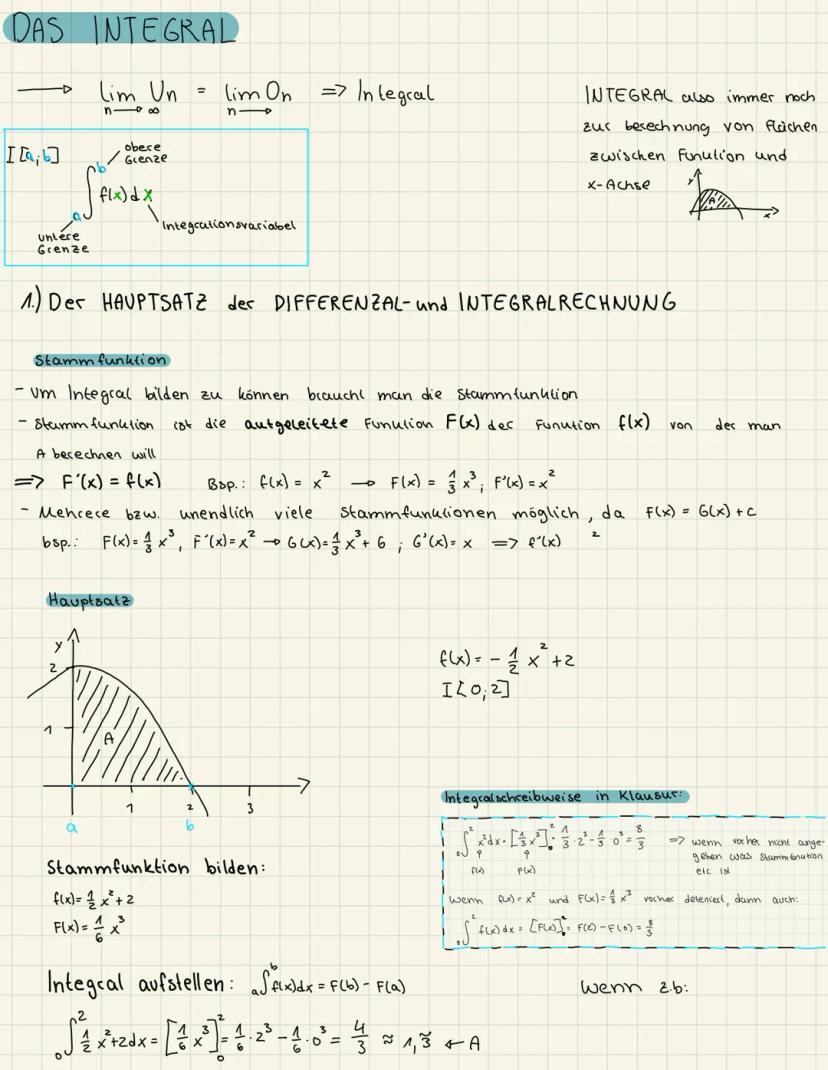 DAS INTEGRAL
→ lim Un = lim On => Integral
n→∞ n→
INTEGRAL also immer noch
zur berechnung von Flächen
zwischen Funktion und
x-Achse
y
A
x
I[a;b]
obere
Grenze
b
∫ f(x)dx
a
Integrationsvariabel
untere
Grenze
1.) Der HAUPTSATZ der DIFFERENZAL- und INTEGRALRECHNUNG
Stammfunktion
- Um Integral bilden zu können braucht man die Stammfunktion
- Stammfunktion ist die aufgeleitete Funktion F(x) der Funktion f(x) von der man
A berechnen will
=> F'(x) = f(x) Bsp.: f(x) = x² → F(x) = 1/3 x³; F'(x) = x²
- Mehrere bzw. unendlich viele Stammfunktionen möglich, da F(x) = G(x) + c
bsp.: F(x) = 1/3 x³, F'(x) = x² → G(x) = 1/3 x³ + 6 ; G'(x) = x => f'(x) ²
Hauptsatz
y
2
1
A
1 2 3
a b
f(x) = - 1/2 x² + 2
I[0;2]
Integralschreibweise in Klausur:
₀∫² x² dx = [1/3 x³]₀² = 1/3 · 2³ - 1/3 · 0³ = 8/3 => wenn vorher nicht ange-
geben was Stammfunktion
etc ist
f(x) F(x)
Wenn f(x) = x² und F(x) = 1/3 x³ vorher definiert, dann auch:
₀∫² f(x) dx = [F(x)]₀² = F(2) - F(0) = 8/3
Stammfunktion bilden:
f(x) = 1/2 x² + 2
F(x) = 1/6 x³
Integral aufstellen: ₐ∫ᵇ f(x)dx = F(b) - F(a)
Wenn z.b:
₀∫² 1/2 x² + 2dx = [1/6 x³]₀² = 1/6 · 2³ - 1/6 · 0³ = 4/3 ≈ 1,3̃ ← A